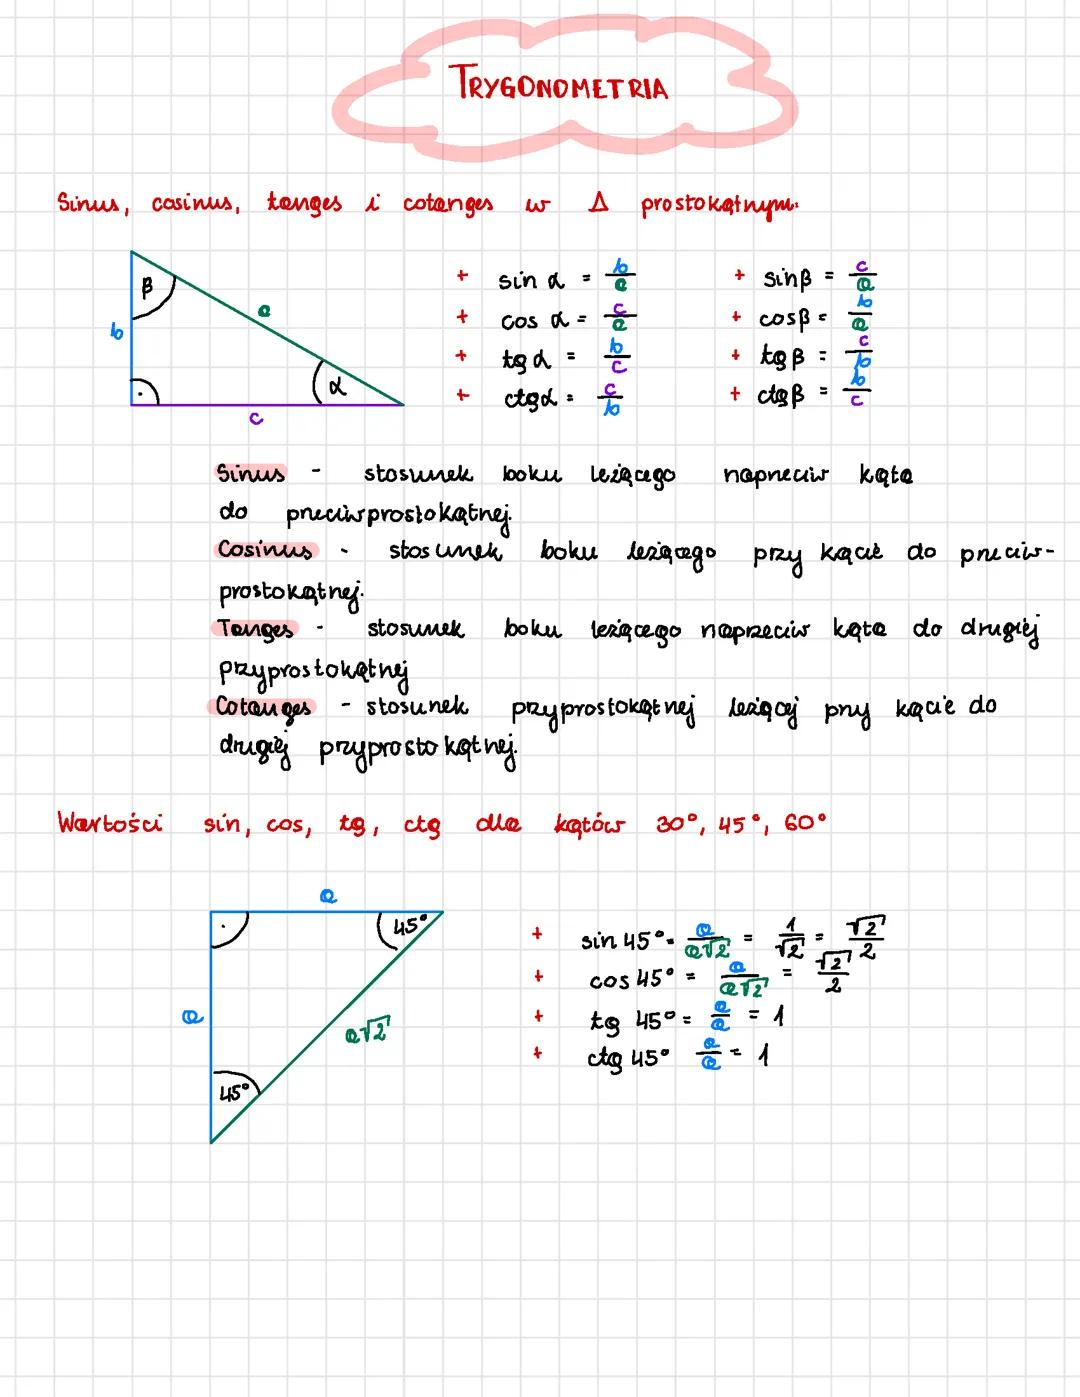 TRYGONOMETRIA
Sinus, cosinus, tanges i cotanges w Δ prostokątnym.
β
a
b
α
c
+ sin α = b/a
+ cos α = c/a
+ tg α = b/c
+ ctgα = c/b
+ sinβ = c/a
+ cosβ = b/a
+ tgβ = c/b
+ ctgβ = b/c
Sinus - stosunek boku leżącego naprzeciw kąta
do przeciwprostokątnej.
Cosinus - stosunek boku leżącego przy kącie do przeciw-
prostokątnej.
Tanges - stosunek boku leżącego naprzeciw kąta do drugiej
przyprostokątnej
Cotanges - stosunek przyprostokątnej leżącej przy kącie do
drugiej przyprostokątnej.
Wartości sin, cos, tg, ctg dla kątów 30°, 45°, 60°
a
45°
a
a√2
45°
+ sin 45° = a/a√2 = 1/√2 = √2/2
+ cos 45° = a/a√2 = √2/2
+ tg 45° = a/a = 1
+ ctg 45° a/a = 1